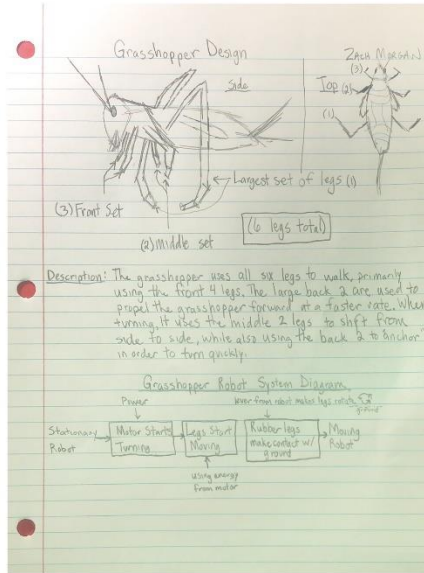 Grasshopper Design
ZACH MORGAN
Side
Top
(3)
(2)
(1)
Largest set of legs (1)
(3) Front Set
(2) middle set
(6 legs total)
Description: The grasshopper uses all six legs to walk, primarily
using the front 4 legs. The large back 2 are used to
propel the grasshopper forward at a faster rate. When
turning, it uses the middle 2 legs to shift from
side to side, while also using the back 2 to anchor
in order to turn quickly.
Grasshopper Robot System Diagram
Power
from robot makes legs rotate
Stationary Robot
Motor Starts Turning
Legs Start Moving
Rubber legs make contact w/ ground
Moving Robot
using energy
from motor